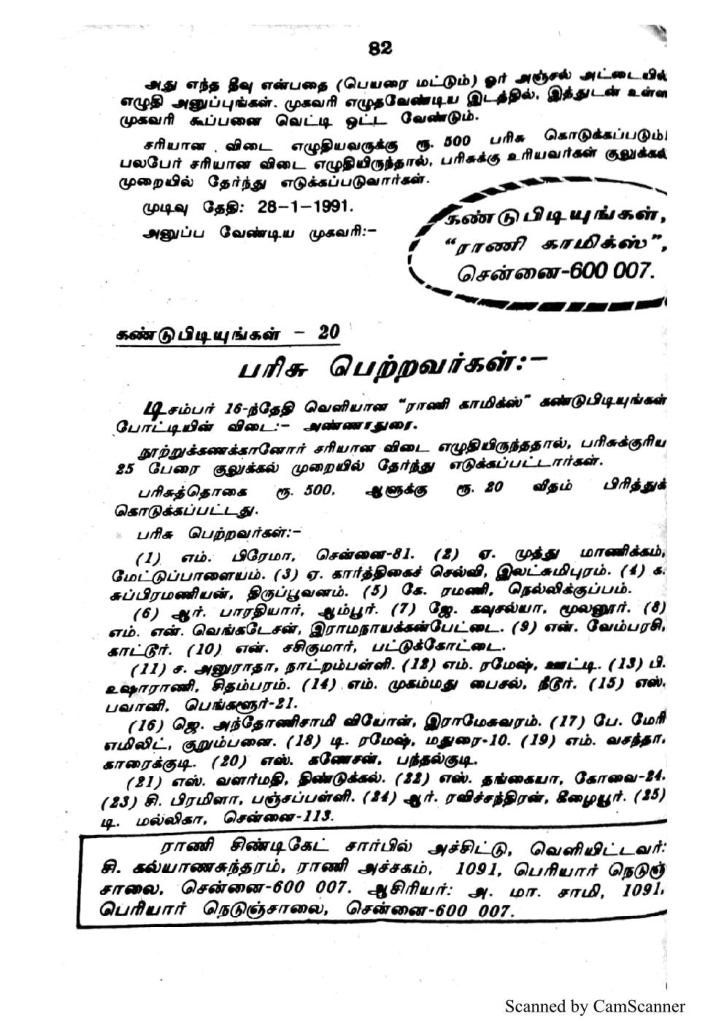 82
அது எந்த தீவு என்பதை (பெயரை மட்டும்) ஓர் அஞ்சல் அட்டையில்
எழுதி அனுப்புங்கள். முகவரி எழுதவேண்டிய இடத்தில், இத்துடன் உள்ள
முகவரி கூப்பனை வெட்டி ஒட்ட வேண்டும்.
சரியான விடை எழுதியவருக்கு ரூ. 500 பரிசு கொடுக்கப்படும்.
பலபேர் சரியான விடை எழுதியிருந்தால், பரிசுக்கு உரியவர்கள் குலுக்கல்
முறையில் தேர்ந்து எடுக்கப்படுவார்கள்.
முடிவு தேதி: 28-1-1991.
அனுப்ப வேண்டிய முகவரி:-
கண்டுபிடியுங்கள்,
"ராணி காமிக்ஸ்",
சென்னை-600 007.
கண்டுபிடியுங்கள் - 20
பரிசு பெற்றவர்கள்:-
டிசம்பர் 16-ந்தேதி வெளியான "ராணி காமிக்ஸ்" கண்டுபிடியுங்கள்
போட்டியின் விடை:- அண்ணாதுரை.
நூற்றுக்கணக்கானோர் சரியான விடை எழுதியிருந்ததால், பரிசுக்குரிய
25 பேரை குலுக்கல் முறையில் தேர்ந்து எடுக்கப்பட்டார்கள்.
பரிசுத்தொகை ரூ. 500, ஆளுக்கு ரூ. 20 வீதம் பிரித்துக்
கொடுக்கப்பட்டது.
பரிசு பெற்றவர்கள்:-
(1) எம். பிரேமா, சென்னை-81. (2) ஏ. முத்து மாணிக்கம்,
மேட்டுப்பாளையம். (3) ஏ. கார்த்திகைச் செல்வி, இலட்சுமிபுரம். (4) க.
சுப்பிரமணியன், திருப்பூவனம். (5) கே. ரமணி, நெல்லிக்குப்பம்.
(6) ஆர். பாரதியார், ஆம்பூர். (7) ஜே. கவுசல்யா, மூலனூர். (8)
எம். என். வெங்கடேசன், இராமநாயக்கன்பேட்டை. (9) என். வேம்பரசி,
காட்டூர். (10) என். சசிகுமார், பட்டுக்கோட்டை.
(11) ச. அனுராதா, நாட்றம்பள்ளி. (12) எம். ரமேஷ், ஊட்டி. (13) பி.
உஷாராணி, சிதம்பரம். (14) எம். முகம்மது பைசல், நீடூர். (15) எஸ்.
பவானி, பெங்களூர்-21.
(16) ஜெ. அந்தோணிசாமி வியோன், இராமேசுவரம். (17) பே. மேரி
எமிலிட், குறும்பனை. (18) டி. ரமேஷ், மதுரை-10. (19) எம். வசந்தா,
காரைக்குடி. (20) எஸ். கணேசன், பந்தல்குடி.
(21) எஸ். வளர்மதி, திண்டுக்கல். (22) எஸ். தங்கையா, கோவை-24.
(23) சி. பிரமிளா, பஞ்சப்பள்ளி. (24) ஆர். ரவிச்சந்திரன், கீழையூர். (25)
டி. மல்லிகா, சென்னை-113.
ராணி சிண்டிகேட் சார்பில் அச்சிட்டு, வெளியிட்டவர்:
சி. கல்யாணசுந்தரம், ராணி அச்சகம், 1091, பெரியார் நெடுஞ்
சாலை, சென்னை-600 007. ஆசிரியர்: அ. மா. சாமி, 1091,
பெரியார் நெடுஞ்சாலை, சென்னை-600 007.
Scanned by CamScanner